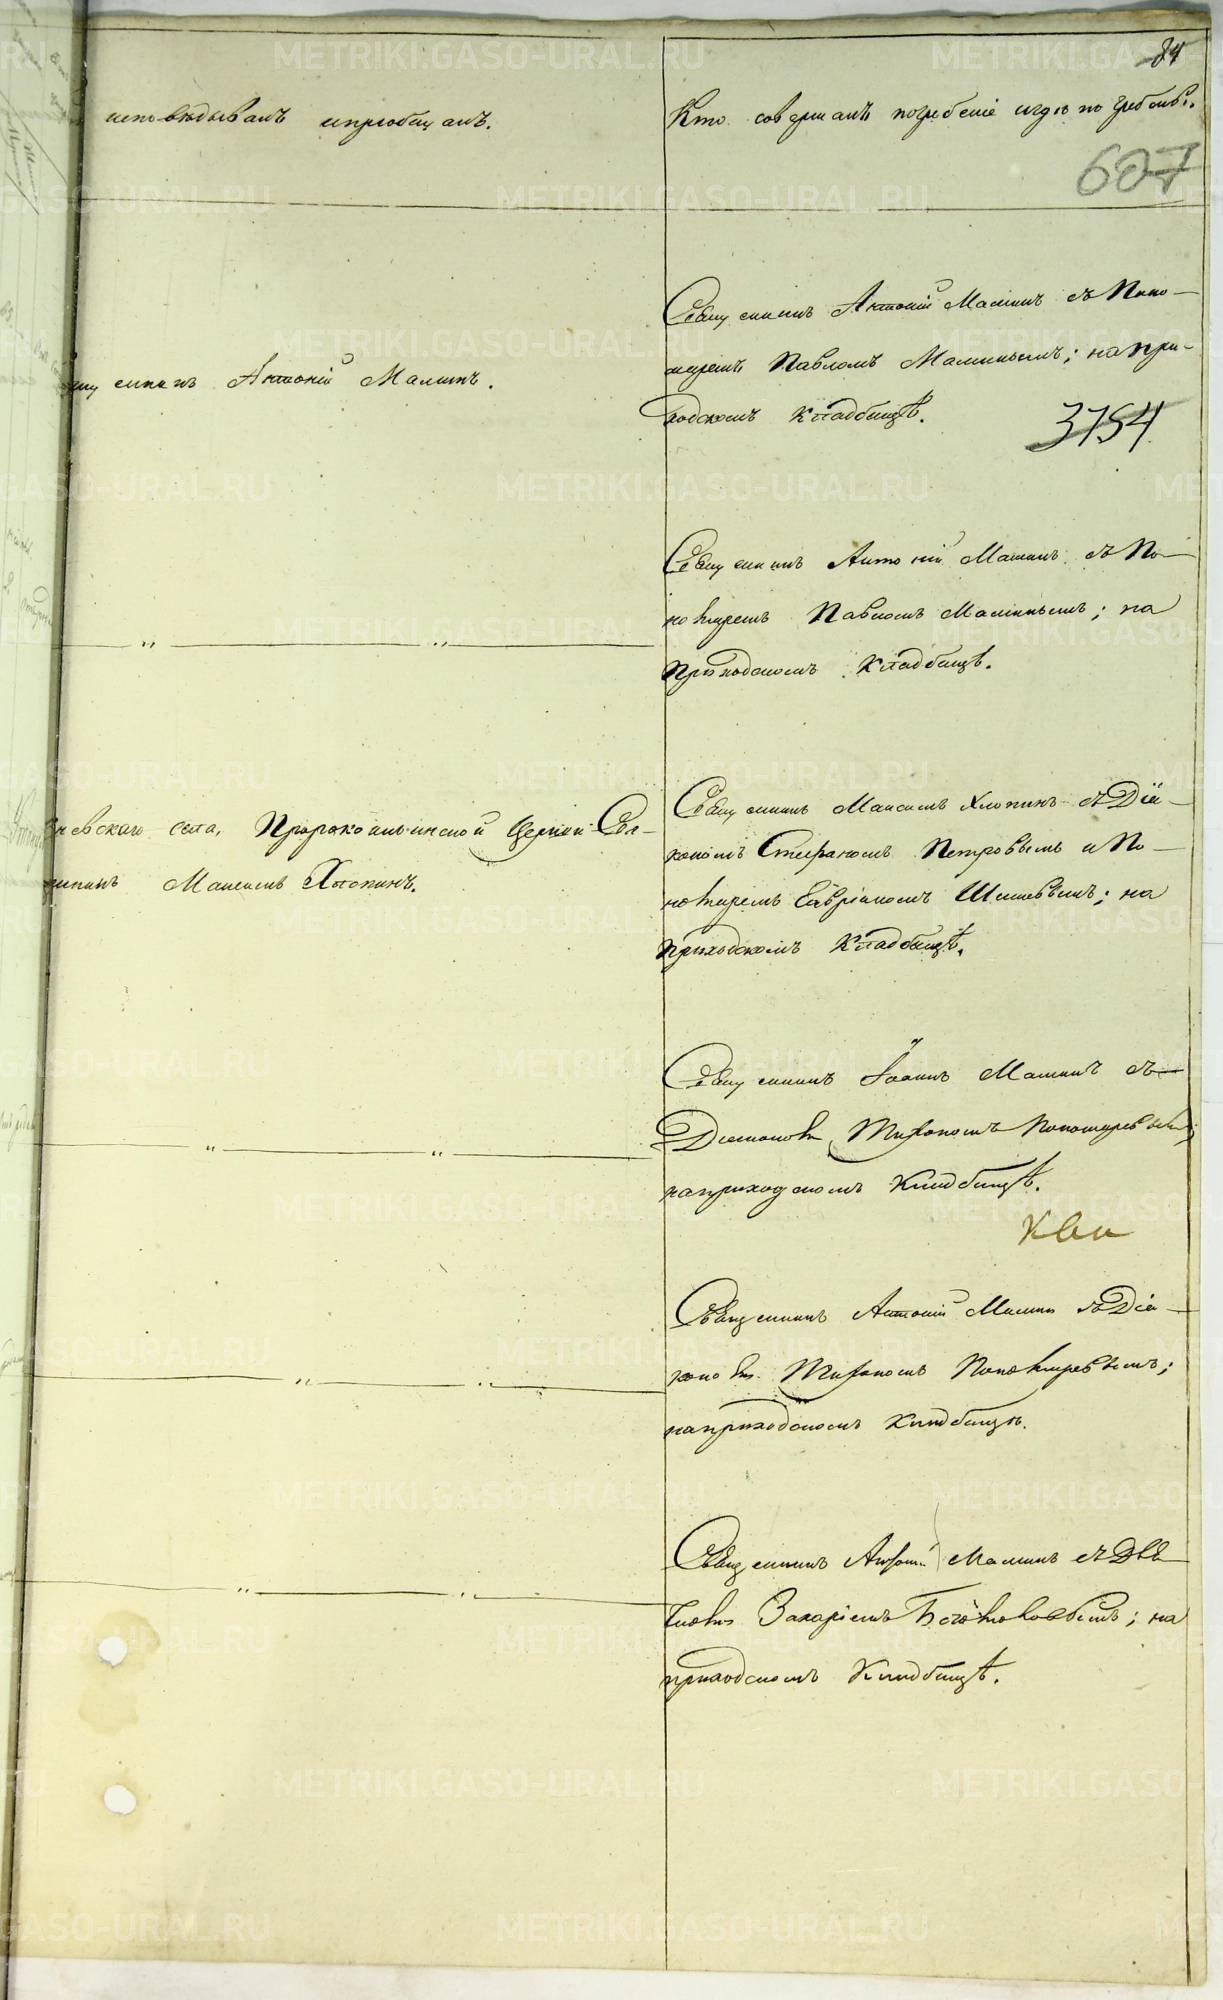 84
исповѣдывалъ и пріобщалъ.
Кто совершалъ погребеніе и гдѣ погребены.
607
Священникъ Антоній Малинъ съ Поно-
маремъ Павломъ Малинымъ; на при-
ходскомъ кладбищѣ.
3754
щенникъ Антоній Малинъ.
Священникъ Антоній Малинъ съ По-
номаремъ Павломъ Малинымъ; на
приходскомъ кладбищѣ.
села, Пророкоильинской церкви Свя-
щенникъ Максимъ Хлопинъ.
Священникъ Максимъ Хлопинъ съ Діа-
кономъ Стефаномъ Петровымъ и По-
номаремъ Гавріиломъ; на
приходскомъ кладбищѣ.
Священникъ Іоаннъ Малинъ съ
Діакономъ Тихономъ Пономаревымъ;
на приходскомъ кладбищѣ.
Священникъ Антоній Малинъ съ Діа-
кономъ Тихономъ Пономаревымъ;
на приходскомъ кладбищѣ.
Священникъ Антоній Малинъ съ Дья-
чкомъ Захаріемъ; на
приходскомъ кладбищѣ.
METRIKI.GASO-URAL.RU